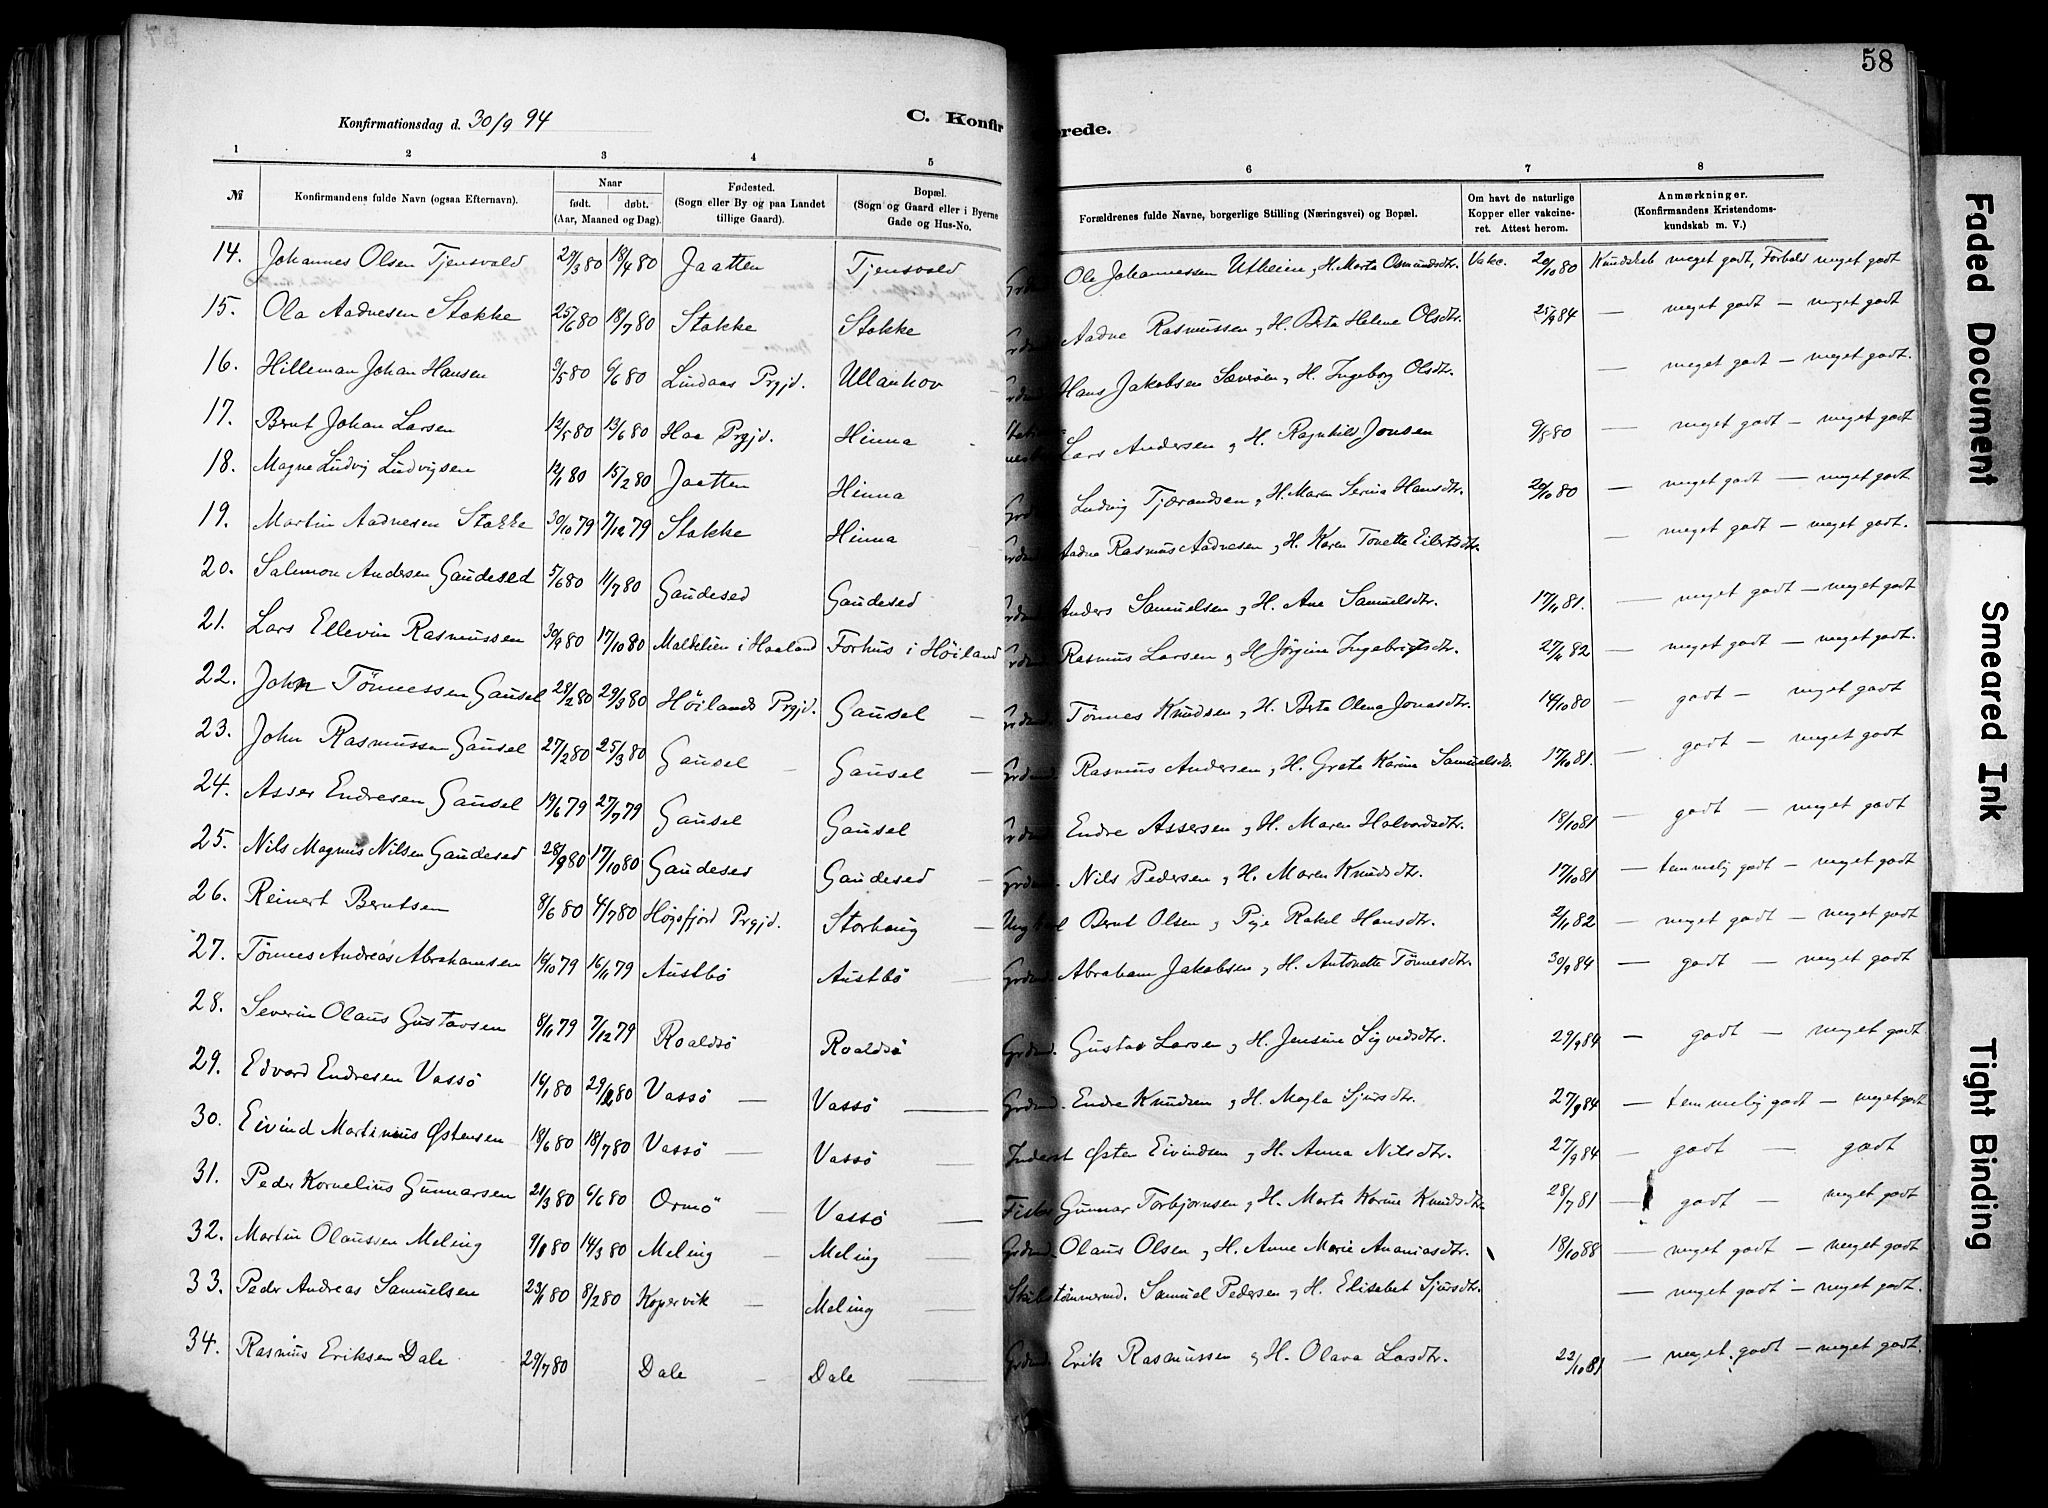 58
Konfirmationsdag d. 30/9 94
C. Konfir
erede.
1 2 3 4 5 6 7 8
№ Konfirmandens fulde Navn (ogsaa Efternavn). Naar født. døbt. (Aar, Maaned og Dag). Fødested. (Sogn eller By og paa Landet tillige Gaard). Bopæl. (Sogn og Gaard eller i Byerne Gade og Hus-No. Forældrenes fulde Navne, borgerlige Stilling (Næringsvei) og Bopæl. Om havt de naturlige Kopper eller vakcineret. Attest herom. Anmærkninger. (Konfirmandens Kristendomskundskab m. V.)
14. Johannes Olsen Tjensvold 29/3 80 18/4 80 Jaatten Tjensvold Ole Johannessen Utheien, H. Marta Osmundsdtr. Vakc. 20/10 80 Kundskab meget godt, Forhold meget godt
15. Ola Aadnesen Stokke 25/6 80 18/7 80 Stokke Stokke Grdmd. Aadne Rasmussen og H. Berta Helene Olsdtr. 25/9 84 — meget godt — meget godt
16. Hilleman Johan Hansen /5 80 6/6 80 Lindaas Prgjd. Ullenhov Grdmd. Hans Jakobsen Sæveröen og H. Ingeborg Olsdtr. — meget godt — meget godt.
17. Bernt Johan Larsen 12/5 80 13/6 80 Haa Prgjd. Hinna Lars Andersen og H. Ragnhild Jonsen 9/8 80 — meget godt — meget godt
18. Magne Ludvig Ludvigsen 12/1 80 15/2 80 Jaatten Hinna Ludvig Tjærandsen, H. Maren Serina Hansdtr. 20/10 80 — meget godt — meget godt
19. Martin Aadnesen Stokke 30/10 79 7/12 79 Stokke Hinna Grdmd. Aadne Rasmus Aadnesen og H. Karen Tonette Eilertsdtr. — meget godt — meget godt.
20. Salemon Andersen Gaudesed 5/6 80 11/7 80 Gaudesed Gaudesed Grdmd. Anders Samuelsen og H. Ane Samuelsdtr. 17/11 81. — meget godt — meget godt
21. Lars Ellevin Rasmussen 30/9 80 17/10 80 Maldelien i Haaland Forhus i Höiland Grdmd. Rasmus Larsen og H Jørgine Ingebrigtsdtr. — meget godt — meget godt.
22. John Tönnessen Gausel 28/2 80 29/3 80 Höilands Prgjd. Gausel — Grdmd. Tönnes Knudsen og H. Berta Olena Jonasdtr. 14/10 80 — godt — meget godt
23. John Rasmussen Gausel 27/2 80 25/3 80 Gausel — Gausel — Grdmd. Rasmus Andersen og H. Grete Karine Samuelsdtr. 17/10 81. — godt — meget godt
24. Asser Endresen Gausel 19/6 79 27/7 79 Gausel Gausel Grdmd. Endre Assersen og H. Maren Halvordsdtr. 18/10 81 — godt — meget godt
25. Nils Magnus Nilsen Gaudesed 28/9 80 17/10 80 Gaudesed Gaudesed — Grdmd. Nils Pedersen og H. Maren Knudsdtr. 17/10 81 — temmelig godt — meget godt
26. Reinert Berntsen 8/6 80 4/7 80 Høgsfjord Prgjd. Storhaug — Ungkarl Bernt Olsen og Pige Rakel Hansdtr. 2/11 82 — meget godt — meget godt
27. Tönnes Andreas Abrahamsen 14/10 79 16/11 79 Austbö Austbö — Grdmd. Abraham Jakobsen og H. Antonette Tönnesdtr. 30/9 84 — godt — meget godt
28. Severin Olaus Gustavsen 8/11 79 7/12 79 Roaldsö Roaldsö Grdmd. Gustav Larsen og H. Jensine Sigvedsdtr. 29/9 84 — godt — meget godt
29. Edvard Endresen Vassö 16/1 80 29/2 80 Vassö — Vassö — Grdmd. Endre Knudsen og H. Magla Sjursdtr. 27/9 84 — temmelig godt — meget godt
30. Eivind Martinius Østensen 18/6 80 18/7 80 Vassö — Vassö — Inderst Østen Eivindsen og H. Anna Nilsdtr. 27/9 84 — godt — godt
31. Peder Kornelius Gunnarsen 21/3 80 6/6 80 Ormö — Vassö — Fisker Gunnar Torbjornsen og H. Marta Karine Knudsdtr. 28/7 81 — godt — meget godt
32. Martin Olaussen Meling 9/1 80 14/3 80 Meling — Meling — Grdmd. Olaus Olsen og H. Anne Marie Ananiasdtr. 18/10 88 — meget godt — meget godt
33. Peder Andreas Samuelsen 23/1 80 8/2 80 Kopervik — Meling — Skibstömmermd. Samuel Pedersen og H. Elisabet Sjursdtr. — meget godt — meget godt.
34. Rasmus Eriksen Dale 29/7 80 Dale — Dale — Grdmd. Erik Rasmussen og H. Olava Larsdtr. 22/10 81 — meget godt — meget godt.
Faded Document
Smeared Ink
Tight Binding